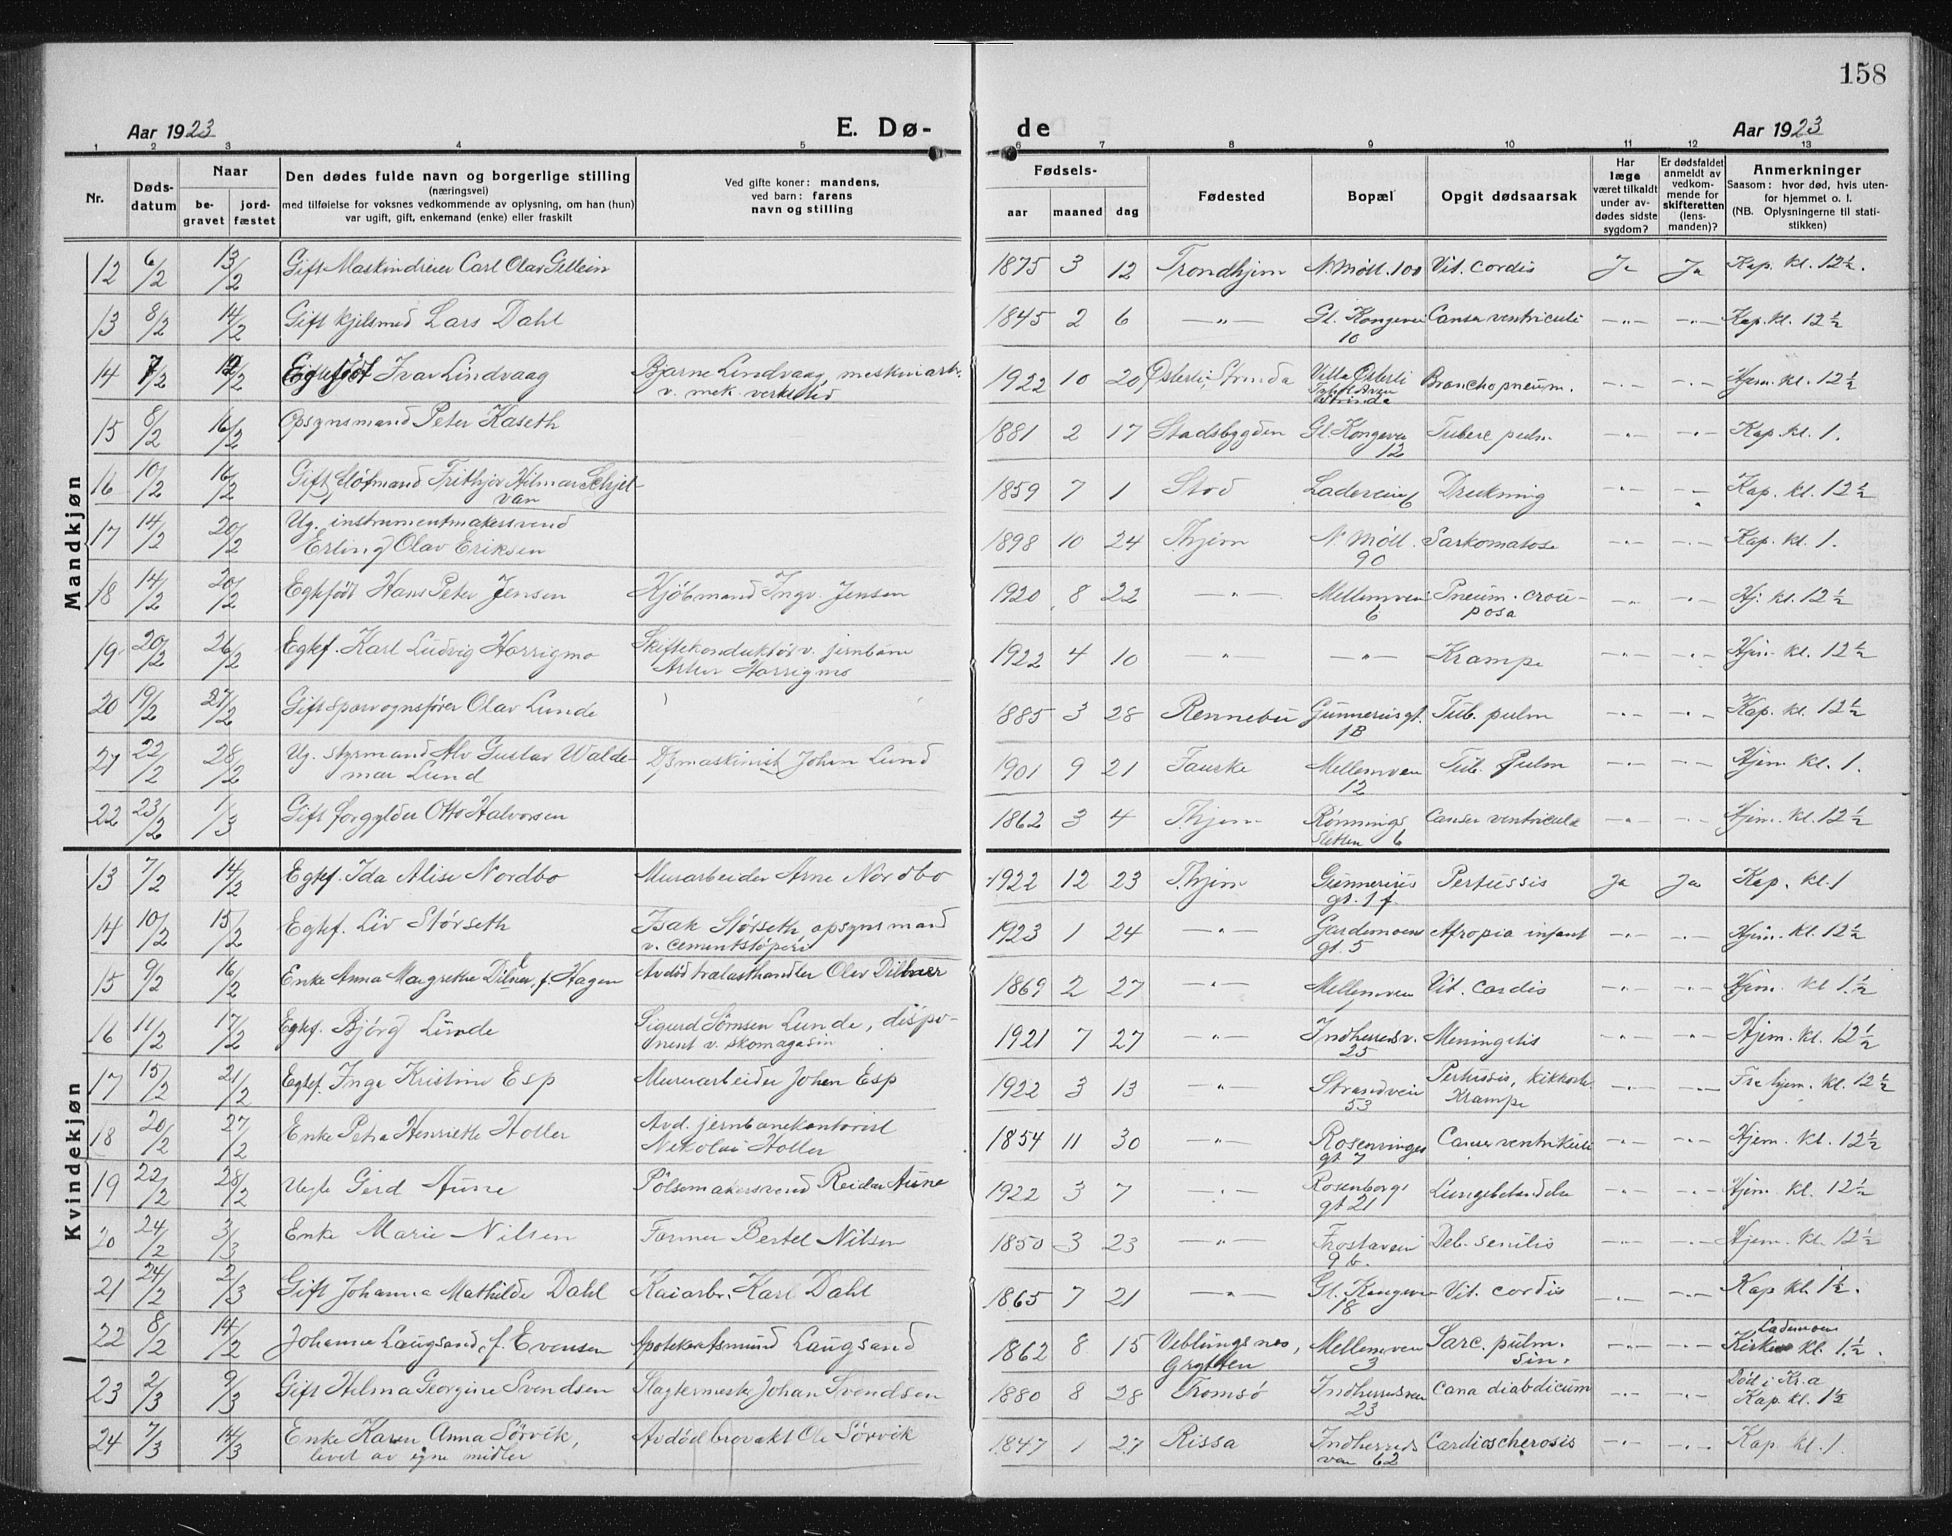 158
Aar 1923
E. Dø-
de
Aar 1923
1 2 3 4 5 6 7 8 9 10 11 12 13
Nr.
Døds-
datum
Naar
be-
gravet
jord-
fæstet
Den dødes fulde navn og borgerlige stilling
(næringsvei)
med tilføielse for voksnes vedkommende av oplysning, om han (hun)
var ugift, gift, enkemand (enke) eller fraskilt
Ved gifte koner: mandens,
ved barn: farens
navn og stilling
Fødsels-
aar
maaned
dag
Fødested
Bopæl
Opgit dødsaarsak
Har
læge
været tilkaldt
under av-
dødes sidste
sygdom?
Er dødsfaldet
anmeldt av
vedkom-
mende for
skifteretten
(lens-
manden)?
Anmerkninger
Saasom: hvor død, hvis uten-
for hjemmet o. l.
(NB. Oplysningerne til stati-
stikken)
Mandkjøn
12 6/2 13/2 Gift Maskindreier Carl Olav Gellein 1875 3 12 Trondhjem N. Möll. 100 Vit. cordis Ja Ja Kap. kl. 12½.
13 8/2 14/2 Gift kjelsmed Lars Dahl 1845 2 6 —"— Gl. Kongevei Canser ventriculi —"— —"— Kap. kl. 12½
10
14 7/2 12/2 Egtefødt Ivar Lindvaag Bjarne Lindvaag, 1922 10 20 Østerli, Strinda Villa Østerli Bronchopneum. —"— —"— Hjem. kl. 12½
v. mek. verksted
Strinda
15 8/2 16/2 Opsynsmand Peter Kaseth 1881 2 17 Stadsbygden Gl. Kongevei Tuberc pulm —"— —"— Kap. kl. 1.
12
16 10/2 16/2 Gift Frithjov Hilmar Schjet- 1859 7 1 Stod Ladeveien 6 Drukning —"— —"— Kap. kl. 12½
van
17 14/2 20/2 Ug. instrumentmakersvend
Erling Olav Eriksen 1898 10 24 Thjem N. Möll. Sarkomatose —"— —"— Kap. kl. 1.
90
18 14/2 20/2 Egtefødt Hans Peter Jensen Kjöbmand Ingv. Jensen 1920 8 22 —"— Mellemvei Pneum. crou- —"— —"— Hj. kl. 12½
6 posa
19 20/2 26/2 Egtef. Karl Ludvig Horrigmo Skiftekonduktör v. jernbane
Artur Horrigmo 1922 4 10 —"— —"— Krampe —"— —"— Hjem. kl. 12½
20 19/2 27/2 Gift Sporvognsfører Olav Lunde 1885 3 28 Rennebu Gunnerusgt. Tub. pulm —"— —"— Kap. kl. 12½
1B
21 22/2 28/2 Ug. styrmand Alv Gustav Walde- Dsmaskinist Johan Lund 1901 9 21 Fauske Mellemvei Tub. Pulm —"— —"— Hjem. kl. 1.
mar Lund 12
22 23/2 1/3 Gift forgylder Otto Halvorsen 1862 3 4 Thjem Rønnings Canser ventricula —"— —"— Hjem. kl. 12½
sletten 6
Kvindekjøn
13 7/2 14/2 Egtef. Ida Alise Nordbo Murarbeider Arne Nordbo 1922 12 23 Thjem Gunnerus Pertussis Ja Ja Kap. kl. 1
gt. 1 f.
14 10/2 15/2 Egtef. Liv Störseth Isak Störseth, opsynsmand
v. cementstöperi 1923 1 24 —"— Gardemoens Atropia infant —"— —"— Hjem. kl. 12½
gt. 5
15 9/2 16/2 Enke Anna Margrethe Dillner, f. Hagen Avdöd tralasthandler Olev Dillner 1869 2 27 —"— Mellemveien Vit. cordis —"— —"— Hjem. kl 1½
16 11/2 17/2 Egtef. Bjørg Lunde Sigurd Lunde, dispo-
nent v. skomagasin 1921 7 27 —"— Indherredsv. Meningitis —"— —"— Hjem. kl. 12½
25
17 15/2 21/2 Egtef. Inga Kristine Esp Murerarbeider Johan Esp 1922 3 13 —"— Strandveien Pertussis, kikhoste —"— —"— Fra hjem. kl. 12½
53 Krampe
18 20/2 27/2 Enke Petra Henriette Holler Avd. jernbanekontorist
Nikolai Holler 1854 11 30 —"— Rosenvinges Canser ventrikuli —"— —"— Hjem. kl. 12½
gt 7
19 22/2 28/2 Uegte Gerd Aune Pölsemakersvend Reidar Aune 1922 3 7 —"— Rosenborgs Lungebetændelse —"— —"— Hjem. kl. 12½
gt 21
20 24/2 3/3 Enke Marie Nilsen Former Bertel Nilsen 1850 3 23 —"— Frostaveien Deb. senilis —"— —"— Hjem. kl. 12½
9 b.
21 24/2 2/3 Gift Johanna Mathilde Dahl Kaiarbr. Karl Dahl 1865 7 21 —"— Gl. Kongevei Vit. cordis —"— —"— Kap kl. 1½.
18
22 8/2 14/2 Johanne Laugsand, f. Evensen Apoteker Asmund Laugsand 1862 8 15 Veblungsnes, Mellemveien Sarc. pulm. —"— —"— Lademoen
Grytten 3 sin. Kirke kl. 1½.
23 2/3 9/3 Gift Hilma Georgine Svendsen Slagtermester Johan Svendsen 1880 8 28 Tromsö Indherredsveien Coma diabdicum —"— —"— Död i Kr.a
23 Kap. kl. 1½
24 7/3 14/3 Enke Karen Anna Sörvik, Avdöd brovakt Ole Sörvik 1847 1 27 Rissa Indherreds Cardioscherosis —"— —"— Kap kl. 1.
levet av egne midler veien 62